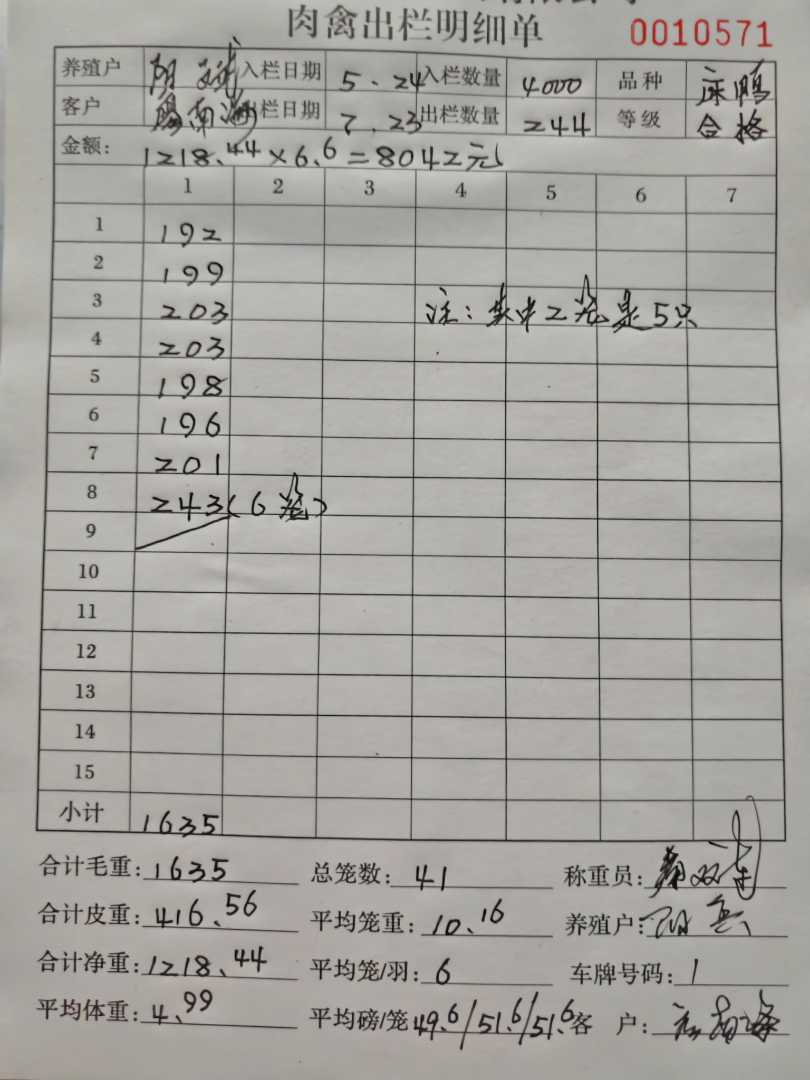 肉禽出栏明细单 0010571
养殖户 入栏日期 5.24 入栏数量 4000 品种 麻鸭
客户 出栏日期 7.23 出栏数量 244 等级 合格
金额: 1218.44×6.6=8042元
1 2 3 4 5 6 7
1 192
2 199
3 203 注:其中2笼是5只
4 203
5 198
6 196
7 201
8 243(6笼)
9
10
11
12
13
14
15
小计 1635
合计毛重:1635 总笼数:41 称重员:
合计皮重:416.56 平均笼重:10.16 养殖户:
合计净重:1218.44 平均笼/羽:6 车牌号码:1
平均体重:4.99 平均磅/笼 49.6/51.6/51.6 客户: